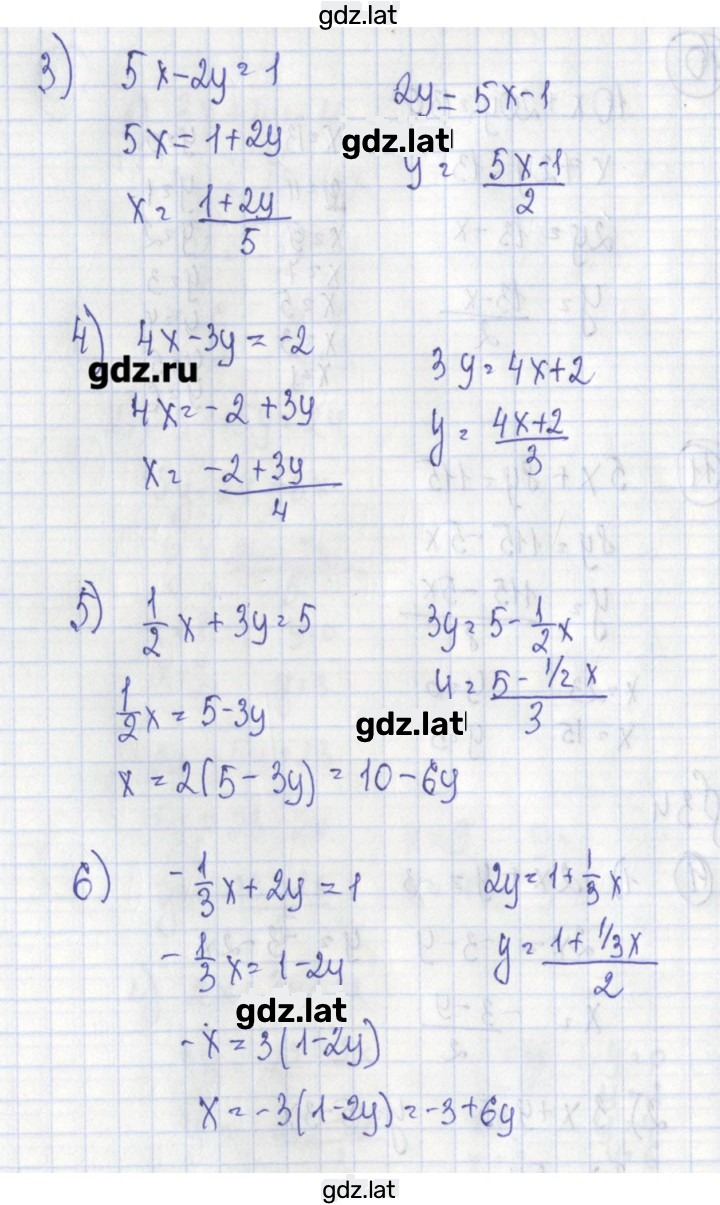 gdz.lat
3) 5x-2y=1
5x=1+2y
x= (1+2y)/5
2y=5x-1
gdz.lat
y= (5x-1)/2
4) 4x-3y=-2
gdz.ru
4x=-2+3y
x= (-2+3y)/4
3y=4x+2
y= (4x+2)/3
5) 1/2 x+3y=5
1/2 x=5-3y
x=2(5-3y)=10-6y
3y=5-1/2 x
y= (5-1/2 x)/3
gdz.lat
6) -1/3 x+2y=1
-1/3 x=1-2y
gdz.lat
-x=3(1-2y)
x=-3(1-2y)=-3+6y
2y=1+1/3 x
y= (1+1/3x)/2
gdz.lat